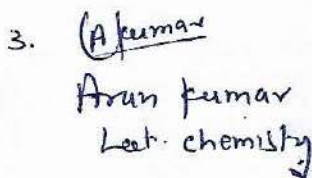 3. (A kumar
Arun kumar
Lect. chemisty